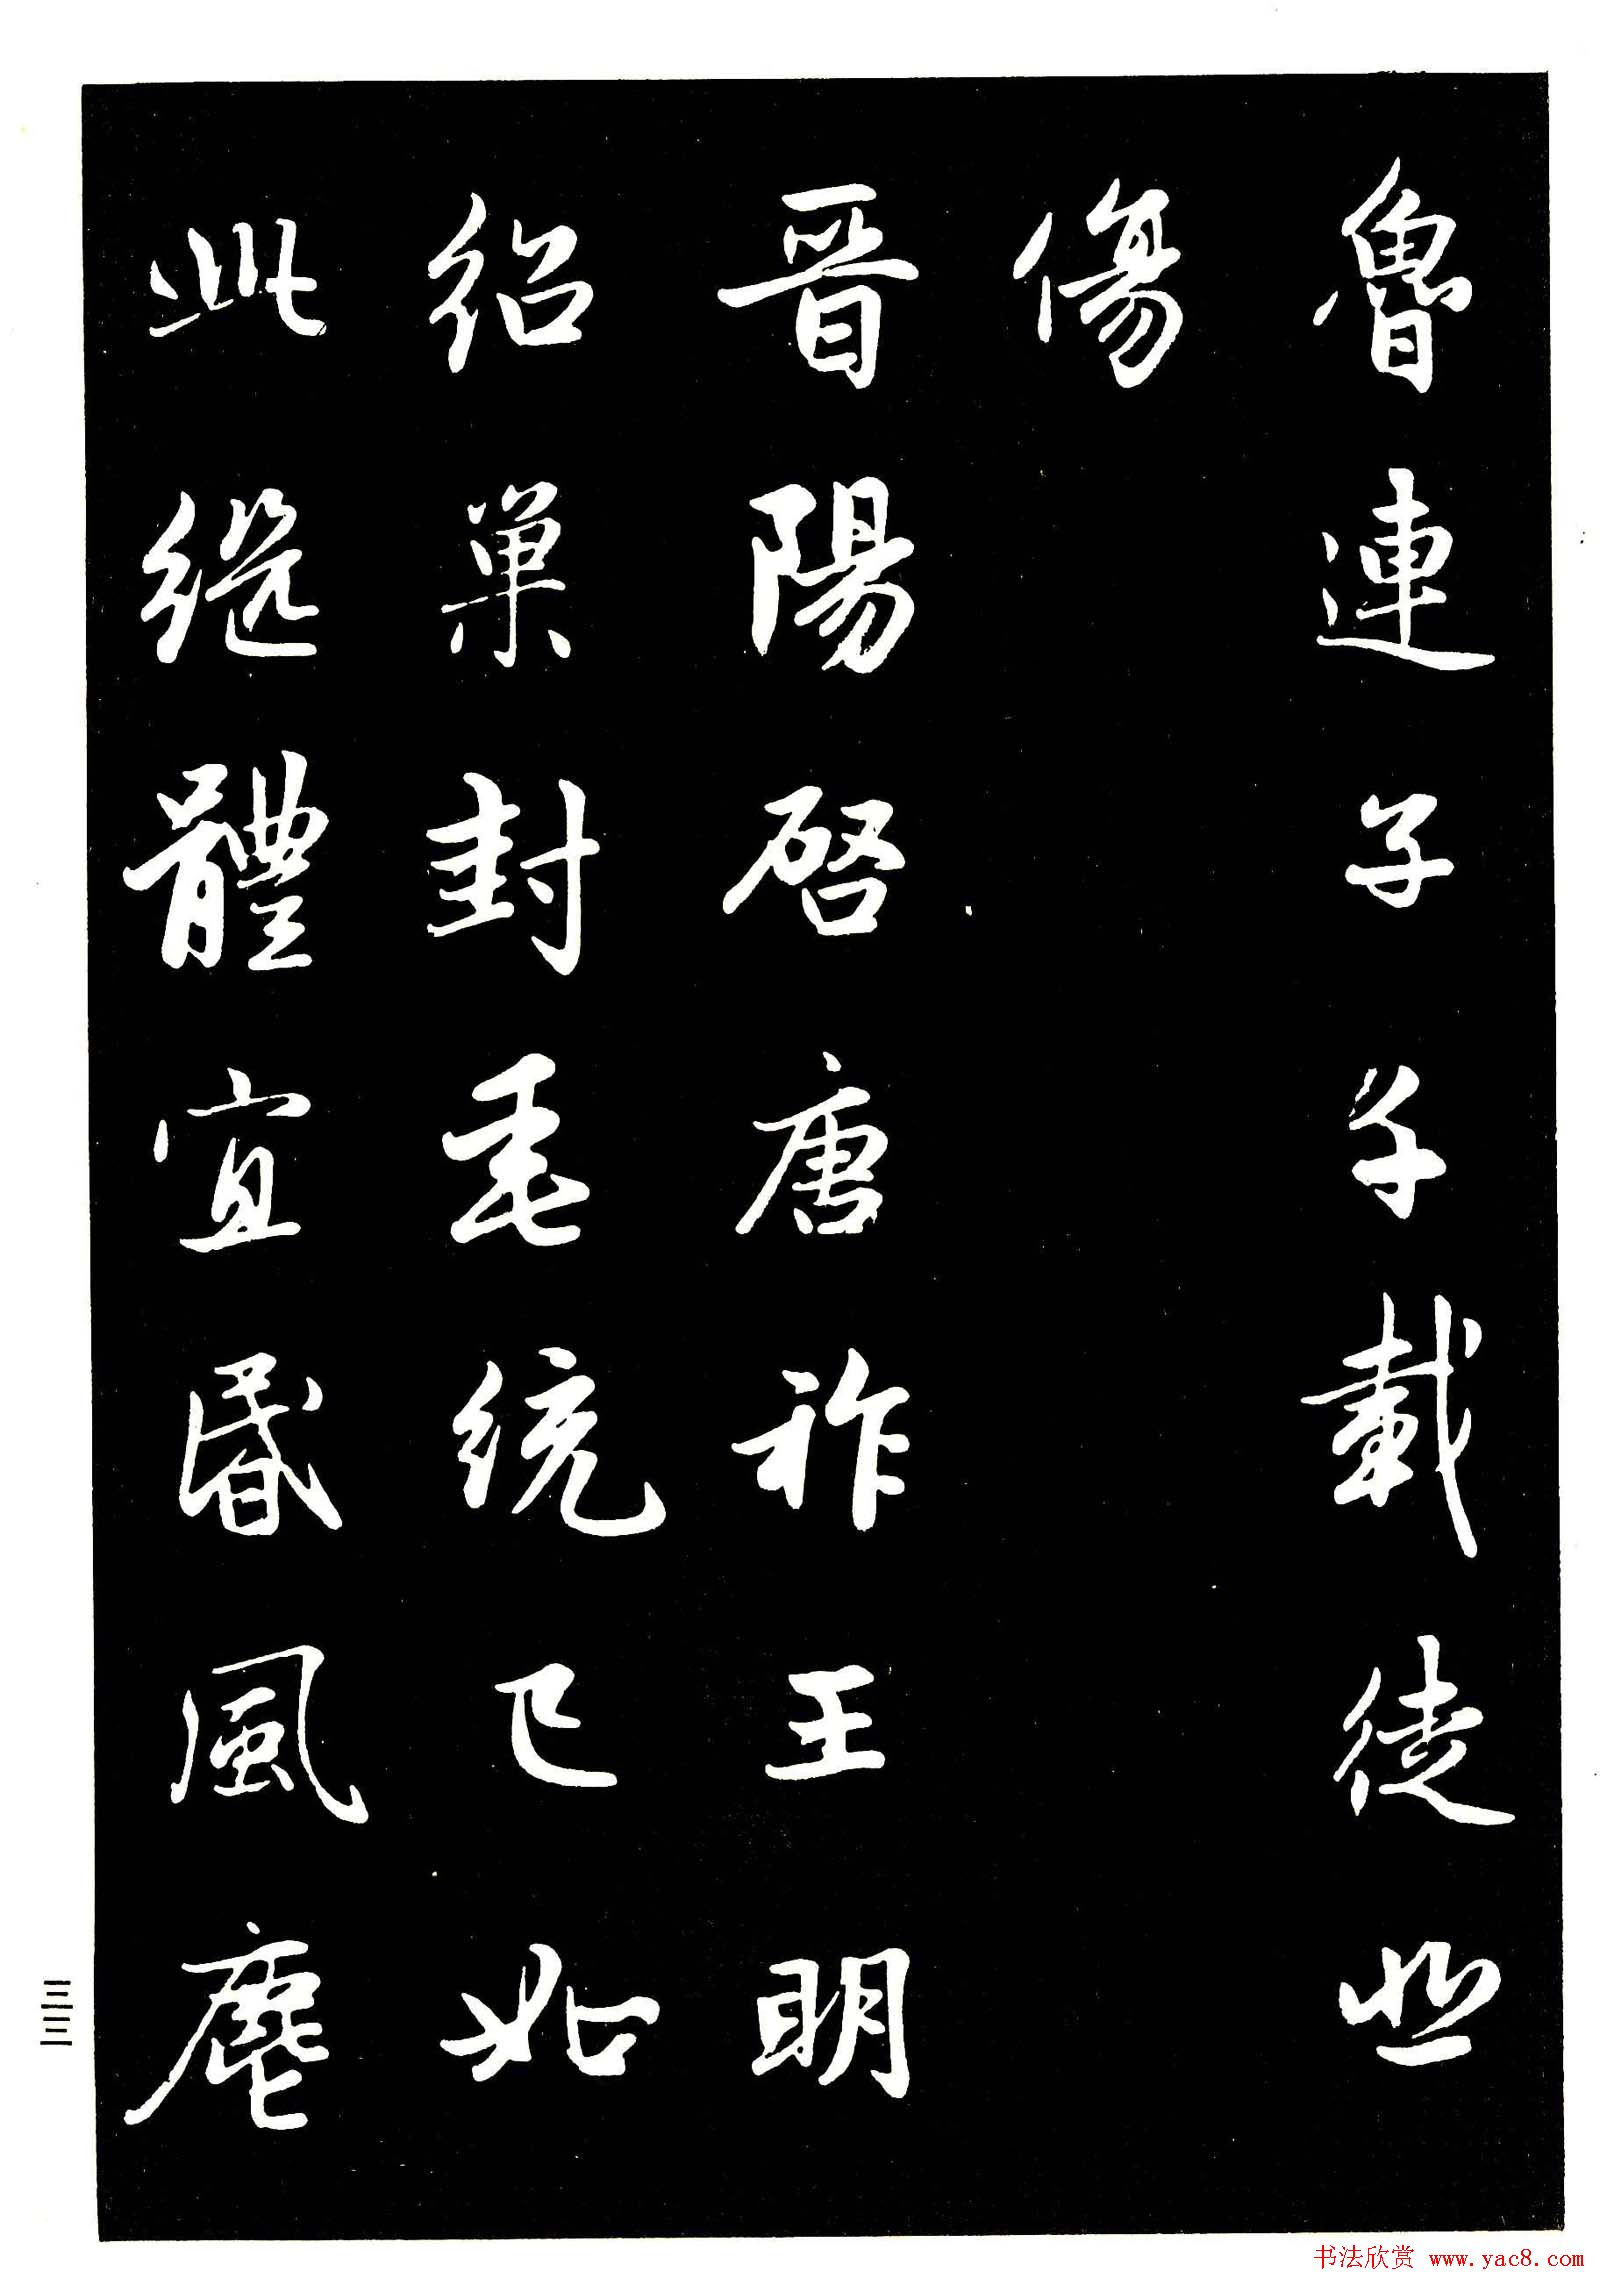 魯連子千載徒悲
傷
晉陽啓唐祚王明
紹巢封垂統已如
此繼體宜昬風麀
三三
书法欣赏 www.yac8.com